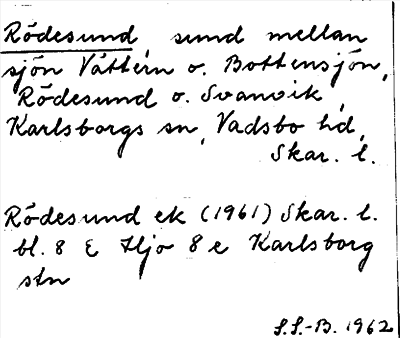 Rödesund, sund mellan
sjön Vättern o. Bottensjön,
Rödesund o. Svanvik,
Karlsborgs sn, Vadsbo hd,
Skar. l.
Rödesund ek (1961) Skar. l.
bl. 8 E Hjo 8 e Karlsborg
stn
S.S.-B. 1962